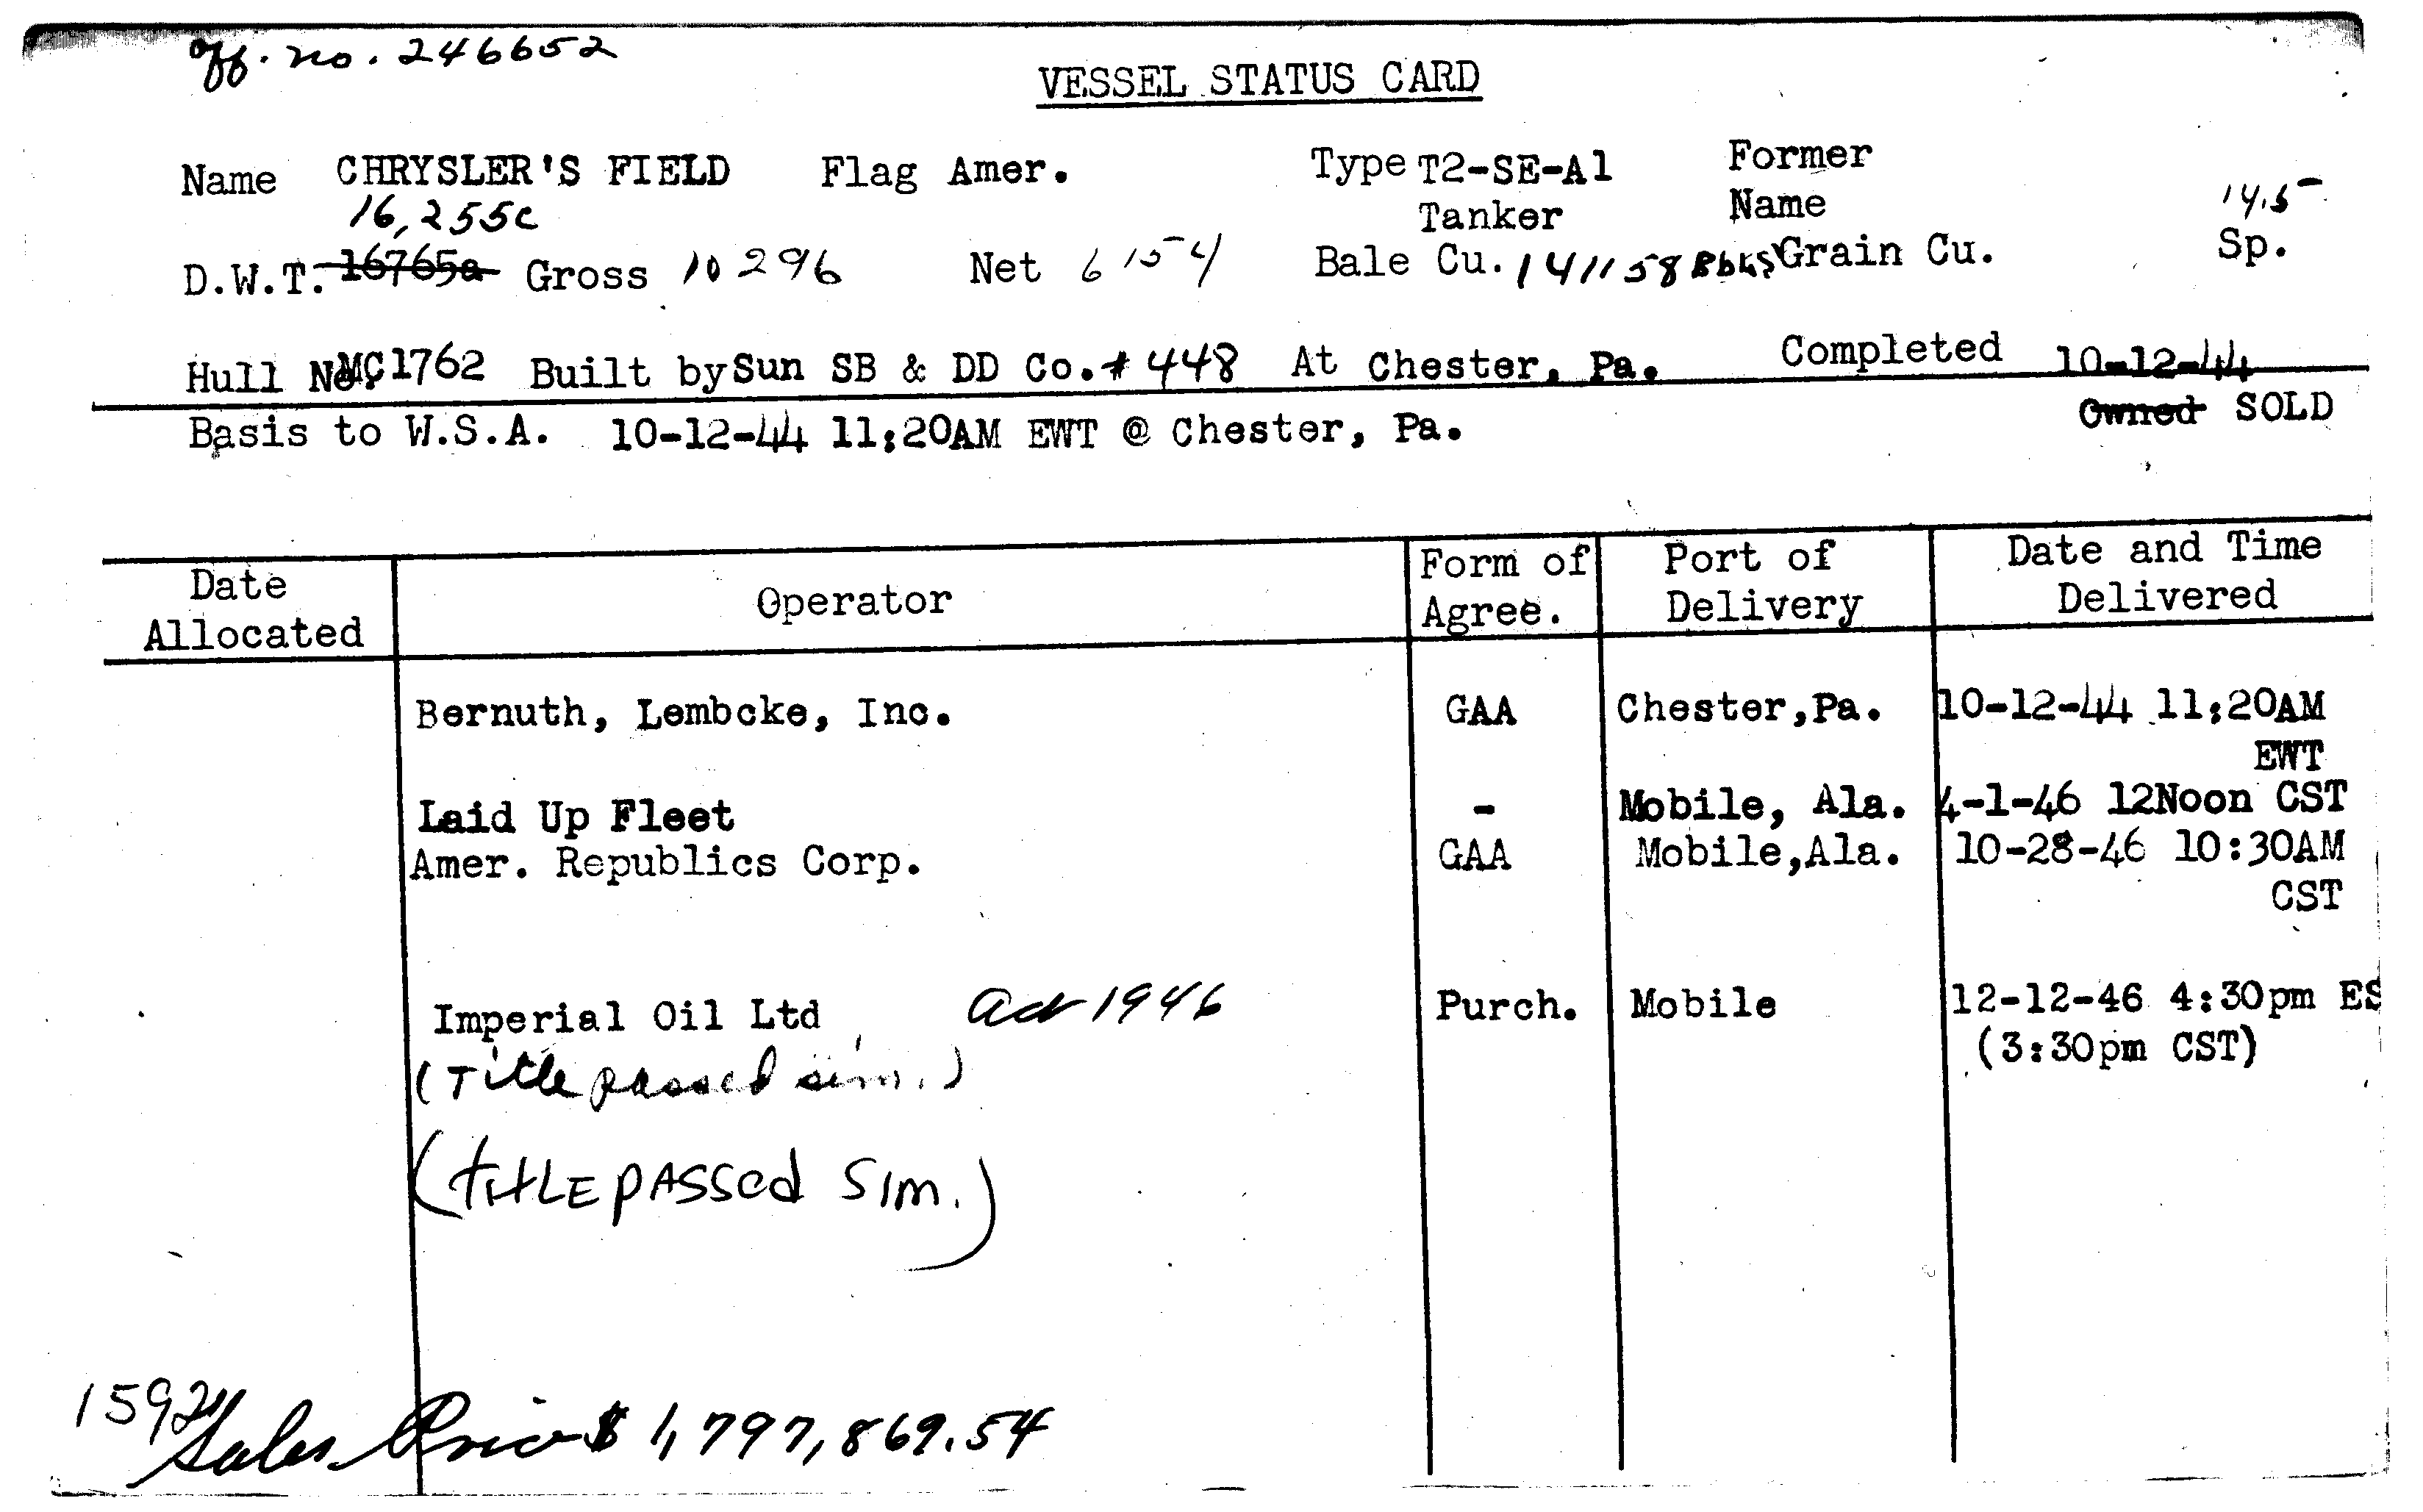 Off. no. 246652
VESSEL STATUS CARD
Name CHRYSLER'S FIELD Flag Amer. Type T2-SE-A1 Tanker Former Name
16,255c 14.5
D.W.T. 16765a Gross 10296 Net 6154 Bale Cu. 141158 Bbls Grain Cu. Sp.
Hull No. MC1762 Built by Sun SB & DD Co. # 448 At Chester, Pa. Completed 10-12-44
Basis to W.S.A. 10-12-44 11:20AM EWT @ Chester, Pa. Owned SOLD
Date Allocated Operator Form of Agree. Port of Delivery Date and Time Delivered
Bernuth, Lembcke, Inc. GAA Chester,Pa. 10-12-44 11:20AM
EWT
Laid Up Fleet - Mobile, Ala. 4-1-46 12Noon CST
Amer. Republics Corp. GAA Mobile,Ala. 10-28-46 10:30AM
CST
Imperial Oil Ltd Act 1946 Purch. Mobile 12-12-46 4:30pm ES
(Title passed sim.) (3:30pm CST)
(TitLE pASSed Sim.)
1592
Sales Price $ 1,797,869.54